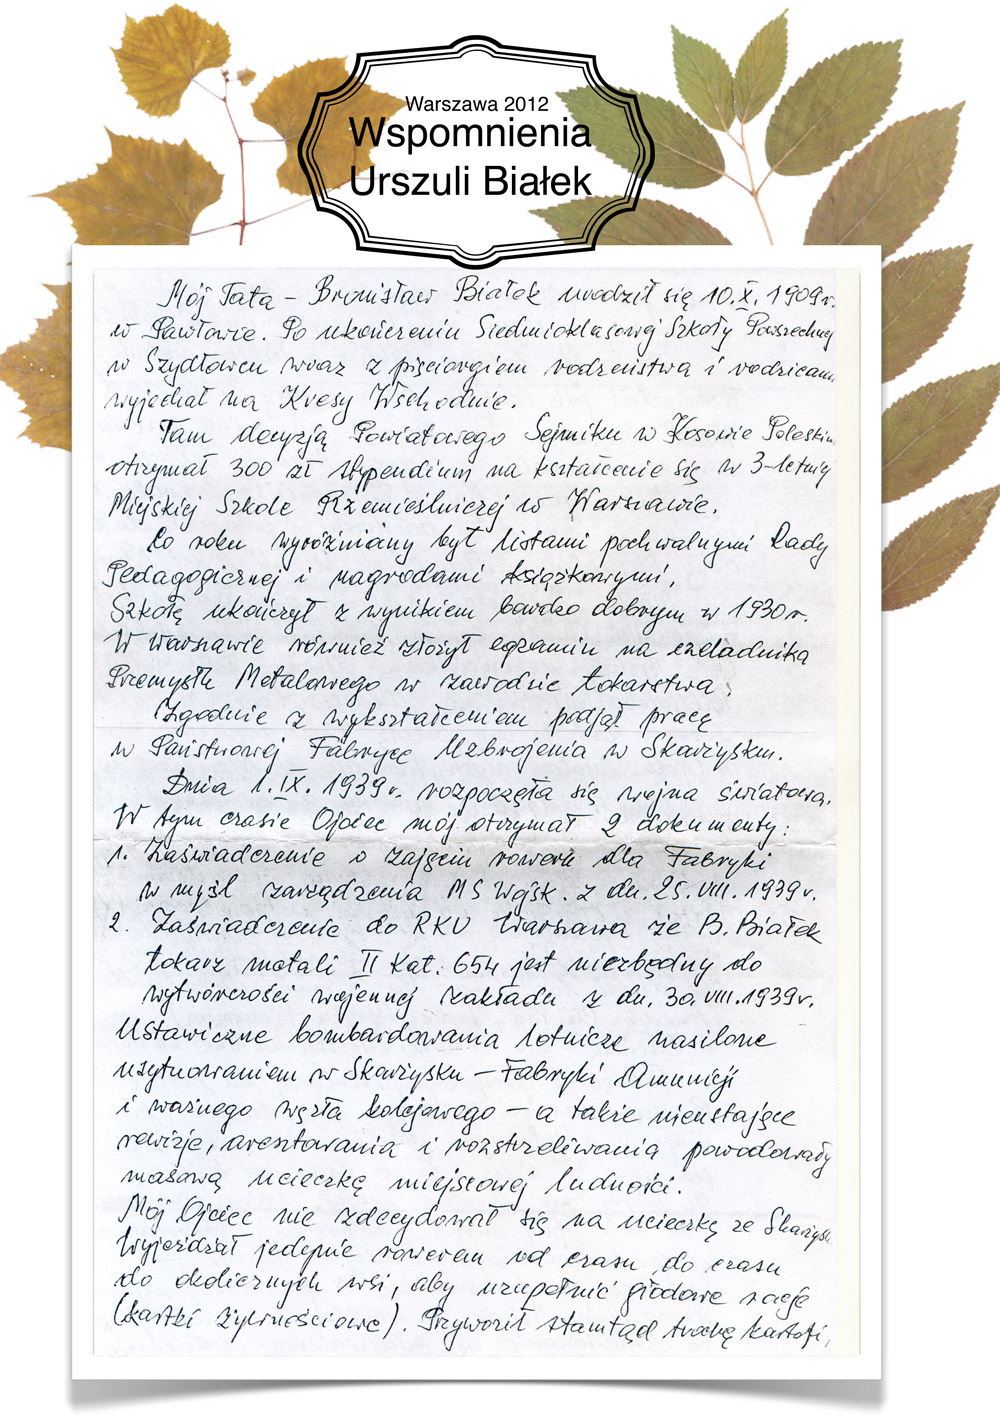 Warszawa 2012
Wspomnienia
Urszuli Białek
Mój Tata – Bronisław Białek urodził się 10.X.1909r.
w Pawłowie. Po ukończeniu Siedmioklasowej Szkoły Powszechnej
w Szydłowcu wraz z pięciorgiem rodzeństwa i rodzicami
wyjechał na Kresy Wschodnie.
Tam decyzją Powiatowego Sejmiku w Kosowie Poleskim
otrzymał 300 zł stypendium na kształcenie się w 3-letniej
Miejskiej Szkole Rzemieślniczej w Warszawie.
Co roku wyróżniany był listami pochwalnymi Rady
Pedagogicznej i nagrodami książkowymi,
Szkołę ukończył z wynikiem bardzo dobrym w 1930r.
W Warszawie również złożył egzamin na czeladnika
Przemysłu Metalowego w zawodzie tokarstwa.
Zgodnie z wykształceniem podjął pracę
w Państwowej Fabryce Uzbrojenia w Skarżysku.
Dnia 1.IX.1939r. rozpoczęła się wojna światowa.
W tym czasie Ojciec mój otrzymał 2 dokumenty:
1. Zaświadczenie o zajęciu roweru dla Fabryki
w myśl zarządzenia MS Wojsk. z dn. 25.VIII.1939r.
2. Zaświadczenie do RKU Warszawa że B. Białek
tokarz metali II Kat. 654 jest niezbędny do
wytwórczości wojennej zakładu z dn. 30.VIII.1939r.
Ustawiczne bombardowania lotnicze nasilone
usytuowaniem w Skarżysku – Fabryki Amunicji
i ważnego węzła kolejowego – a także nieustające
rewizje, aresztowania i rozstrzeliwania powodowały
masową ucieczkę miejscowej ludności.
Mój Ojciec nie zdecydował się na ucieczkę ze Skarżys.
Wyjeżdżał jedynie rowerem od czasu do czasu
do okolicznych wsi, aby uzupełnić głodowe racje
(kartki żywnościowe). Przywoził stamtąd trochę kartofli,